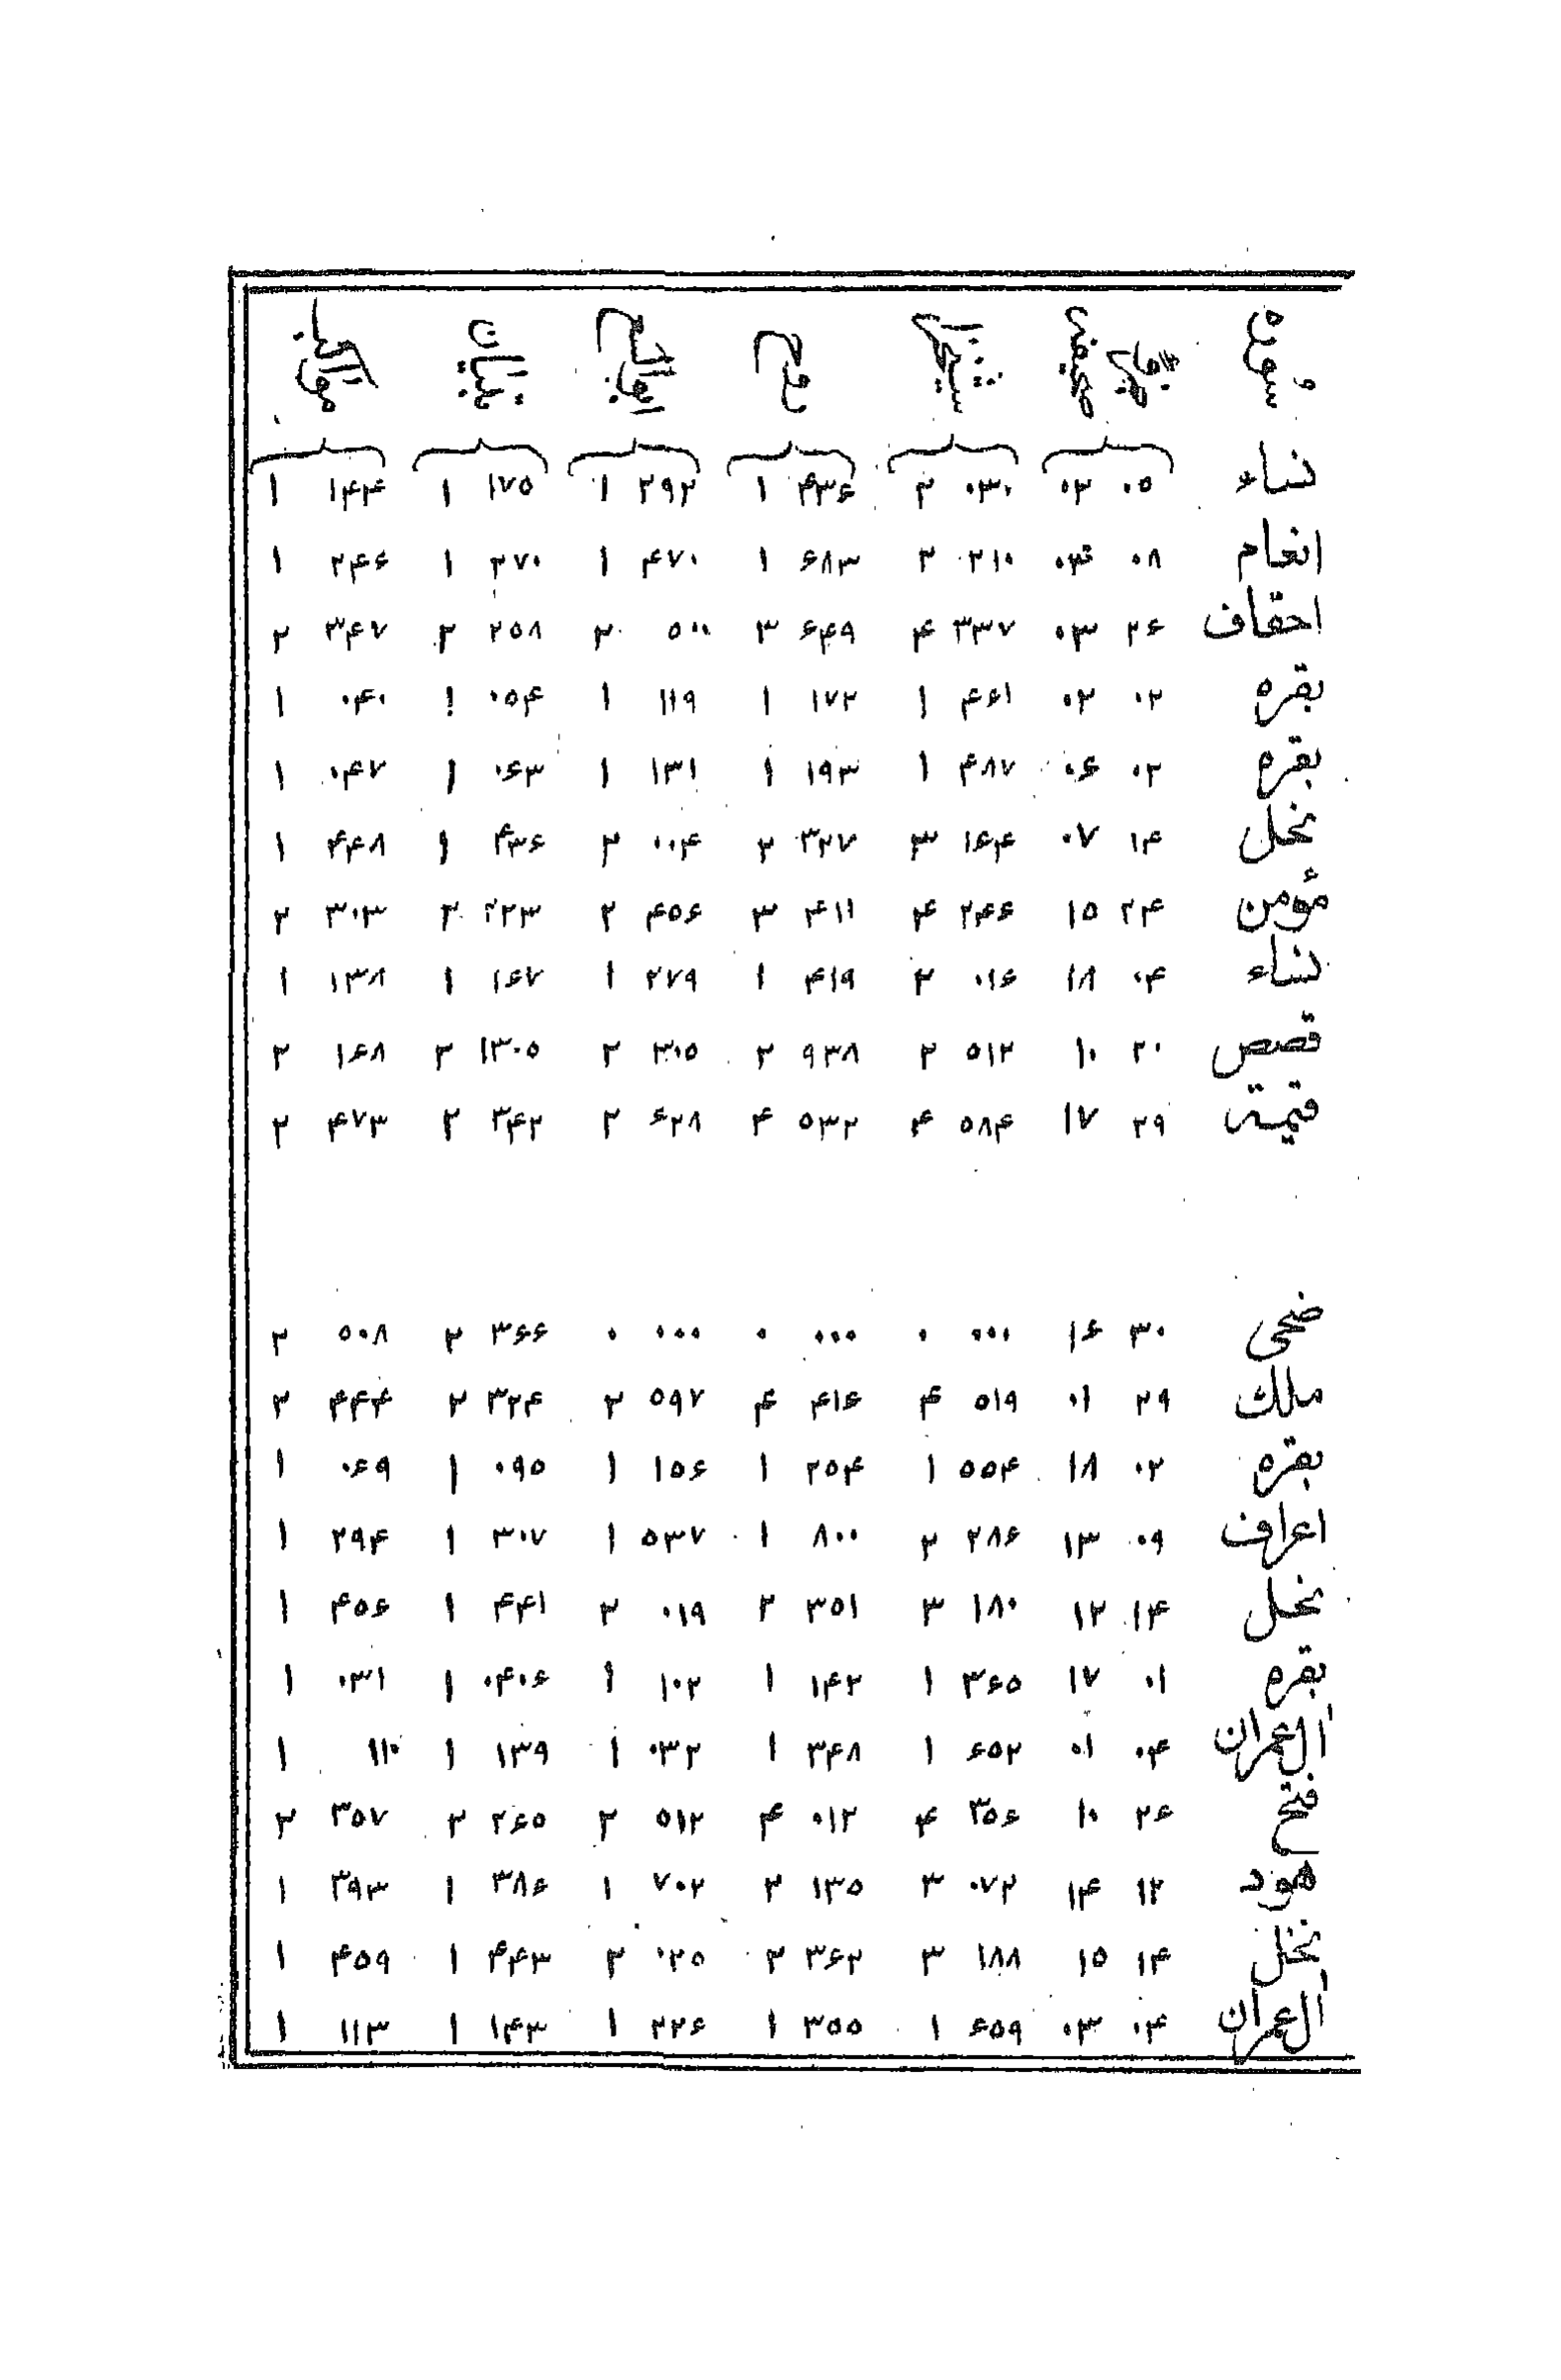 سوره
نساء ۰۵ ۰۲ ۰۳۰ ۲ ۴۳۶ ۱ ۲۹۲ ۱ ۱۷۵ ۱ ۱۴۴ ۱
انعام ۰۸ ۲۱۰ ۲ ۶۸۳ ۱ ۴۷۰ ۱ ۲۷۰ ۱ ۲۴۶ ۱
احقاف ۲۶ ۰۳ ۳۳۷ ۴ ۶۴۹ ۳ ۵۰۰ ۲ ۲۵۸ ۲ ۳۴۷ ۲
بقره ۰۲ ۰۲ ۴۶۱ ۱ ۱۷۲ ۱ ۱۱۹ ۱ ۰۵۴ ۱ ۰۴۰ ۱
بقره ۰۲ ۰۶ ۴۸۷ ۱ ۱۹۳ ۱ ۱۳۱ ۱ ۰۶۳ ۱ ۰۴۷ ۱
نحل ۱۴ ۰۷ ۱۶۴ ۳ ۳۲۷ ۲ ۰۰۴ ۲ ۴۳۶ ۱ ۴۴۸ ۱
مؤمن ۲۴ ۱۵ ۲۴۶ ۴ ۴۱۱ ۳ ۴۵۶ ۲ ۲۲۳ ۲ ۳۰۳ ۲
نساء ۰۴ ۱۸ ۰۱۶ ۲ ۴۱۹ ۱ ۲۷۹ ۱ ۱۶۷ ۱ ۱۳۸ ۱
قصص ۲۰ ۱۰ ۵۱۲ ۲ ۹۳۸ ۲ ۳۰۵ ۲ ۱۳۰۵ ۲ ۱۶۸ ۲
قیمة ۲۹ ۱۷ ۵۸۴ ۴ ۵۳۲ ۴ ۶۲۸ ۲ ۳۴۲ ۲ ۴۷۳ ۲
ضحی ۳۰ ۱۶ ۰۰۰ ۰ ۰۰۰ ۰ ۰۰۰ ۰ ۳۶۶ ۲ ۵۰۸ ۲
ملك ۲۹ ۰۱ ۵۱۹ ۴ ۴۱۶ ۴ ۵۹۷ ۲ ۳۲۴ ۲ ۴۴۴ ۲
بقره ۰۲ ۱۸ ۵۵۴ ۱ ۲۵۴ ۱ ۱۵۶ ۱ ۰۹۵ ۱ ۰۶۹ ۱
اعراف ۰۹ ۱۳ ۲۸۶ ۲ ۸۰۰ ۱ ۵۳۷ ۱ ۳۰۷ ۱ ۲۹۴ ۱
نحل ۱۴ ۱۲ ۱۸۰ ۳ ۳۵۱ ۲ ۰۱۹ ۲ ۴۴۱ ۱ ۴۵۶ ۱
بقره ۰۱ ۱۷ ۳۶۵ ۱ ۱۴۲ ۱ ۱۰۲ ۱ ۰۴۰۶ ۱ ۰۳۱ ۱
آل عمران ۰۴ ۰۱ ۶۵۲ ۱ ۳۴۸ ۱ ۰۳۲ ۱ ۱۳۹ ۱ ۱۱۰ ۱
فتح ۲۶ ۱۰ ۳۵۶ ۴ ۰۱۲ ۴ ۵۱۲ ۲ ۲۶۵ ۲ ۳۵۷ ۲
هود ۱۲ ۱۴ ۰۷۲ ۳ ۱۳۵ ۲ ۷۰۲ ۱ ۳۸۶ ۱ ۳۹۳ ۱
نحل ۱۴ ۱۵ ۱۸۸ ۳ ۳۶۲ ۲ ۰۲۵ ۲ ۴۴۳ ۱ ۴۵۹ ۱
آل عمران ۰۴ ۰۳ ۶۵۹ ۱ ۳۵۵ ۱ ۲۲۶ ۱ ۱۴۳ ۱ ۱۱۳ ۱